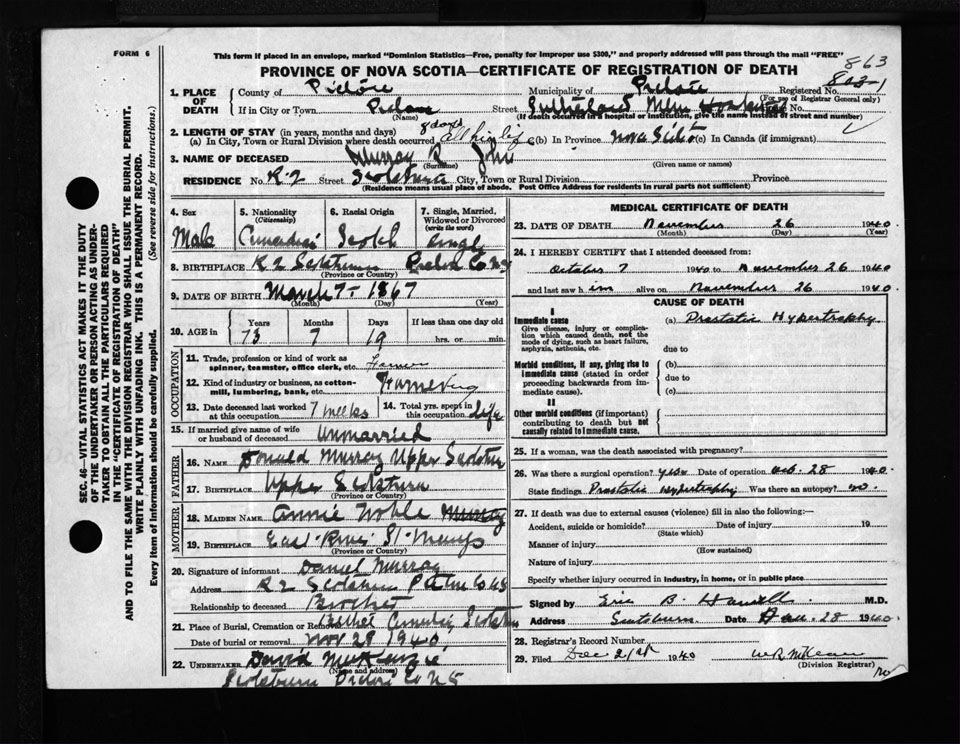 FORM 6
This form if placed in an envelope, marked "Dominion Statistics—Free, penalty for improper use $300," and properly addressed will pass through the mail "FREE"
863
PROVINCE OF NOVA SCOTIA—CERTIFICATE OF REGISTRATION OF DEATH
803-1
1. PLACE OF DEATH
County of Pictou
Municipality of Pictou Registered No.
(For use of Registrar General only)
If in City or Town Pictou Street Sutherland Mem Hospital No.
(Name) (If death occurred in a hospital or institution, give the name instead of street and number)
2. LENGTH OF STAY (in years, months and days) 8 days
(a) In City, Town or Rural Division where death occurred all his life (b) In Province Nova Scotia (c) In Canada (if immigrant)
3. NAME OF DECEASED Murray R John
(Surname) (Given name or names)
RESIDENCE No. R-2 Street Scotsburn City, Town or Rural Division Province
(Residence means usual place of abode. Post Office Address for residents in rural parts not sufficient)
4. Sex Male
5. Nationality (Citizenship) Canadian
6. Racial Origin Scotch
7. Single, Married, Widowed or Divorced (write the word) Single
8. BIRTHPLACE R 2 Scotsburn Pictou Co NS
(Province or Country)
9. DATE OF BIRTH March 7 - 1867
(Month) (Day) (Year)
10. AGE in Years 73 Months 7 Days 19 If less than one day old hrs. or min.
OCCUPATION
11. Trade, profession or kind of work as spinner, teamster, office clerk, etc.
12. Kind of industry or business, as cotton-mill, lumbering, bank, etc. Farming
13. Date deceased last worked at this occupation 7 weeks
14. Total yrs. spent in this occupation Life
15. If married give name of wife or husband of deceased Unmarried
FATHER
16. NAME Donald Murray Upper Scotsburn
17. BIRTHPLACE Upper Scotsburn
(Province or Country)
MOTHER
18. MAIDEN NAME Annie Noble Murray
19. BIRTHPLACE East River St. Marys
(Province or Country)
20. Signature of informant Daniel Murray
Address R 2 Scotsburn Pictou Co NS
Relationship to deceased Brother
21. Place of Burial, Cremation or Removal Bethel Cemetery, Scotsburn
Date of burial or removal Nov 28 1940
22. UNDERTAKER David McKenzie
(Name and address)
Scotsburn Pictou Co NS
MEDICAL CERTIFICATE OF DEATH
23. DATE OF DEATH November 26 1940
(Month) (Day) (Year)
24. I HEREBY CERTIFY that I attended deceased from:
October 7 1940 to November 26 1940
and last saw him alive on November 26 1940.
CAUSE OF DEATH
I
Immediate cause
Give disease, injury or complication which caused death, not the mode of dying, such as heart failure, asphyxia, asthenia, etc.
(a) Prostatic Hypertrophy
due to
Morbid conditions, if any, giving rise to immediate cause (stated in order proceeding backwards from immediate cause).
(b)
due to
(c)
II
Other morbid conditions (if important) contributing to death but not causally related to immediate cause.
25. If a woman, was the death associated with pregnancy?
26. Was there a surgical operation? yes Date of operation Oct. 28 1940.
State findings Prostatic hypertrophy Was there an autopsy? no.
27. If death was due to external causes (violence) fill in also the following:—
Accident, suicide or homicide? Date of injury 19
(State which)
Manner of injury
(How sustained)
Nature of injury
Specify whether injury occurred in industry, in home, or in public place
Signed by Eric B. M.D.
Address Scotsburn Date 28 1940.
28. Registrar's Record Number
29. Filed Dec 2 1940
(Division Registrar)
SEC. 46—VITAL STATISTICS ACT MAKES IT THE DUTY
OF THE UNDERTAKER OR PERSON ACTING AS UNDERTAKER
TO OBTAIN ALL THE PARTICULARS REQUIRED
IN THE "CERTIFICATE OF REGISTRATION OF DEATH"
AND TO FILE THE SAME WITH THE DIVISION REGISTRAR WHO SHALL ISSUE THE BURIAL PERMIT.
WRITE PLAINLY WITH UNFADING INK. THIS IS A PERMANENT RECORD.
Every item of information should be carefully supplied. (See reverse side for instructions.)